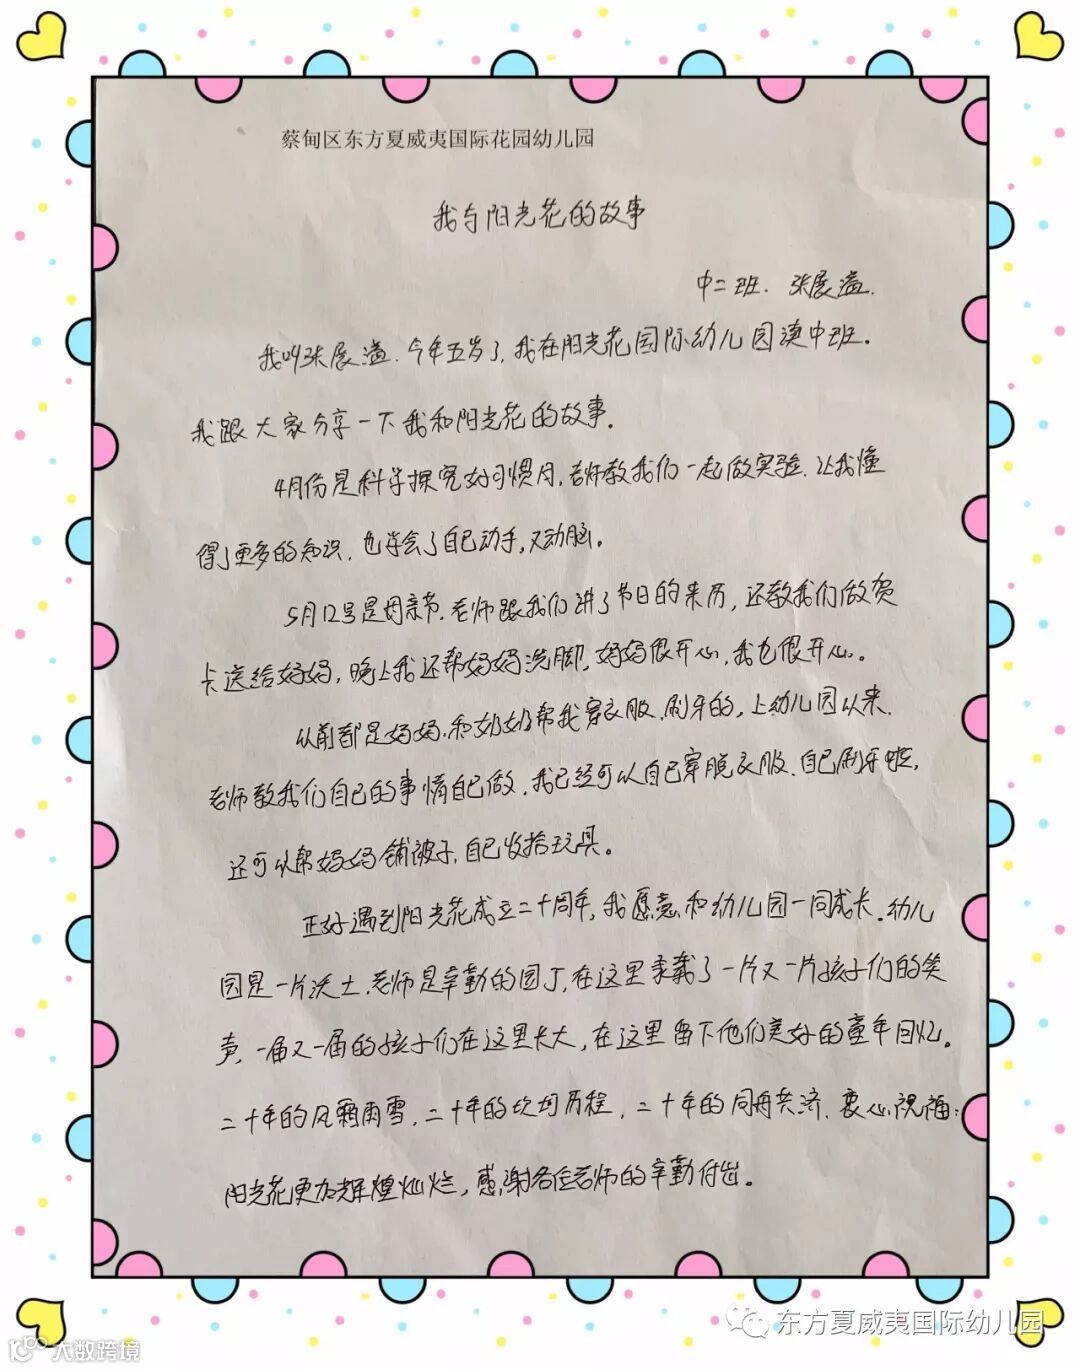 蔡甸区东方夏威夷国际花园幼儿园
我与阳光花的故事
中二班. 张展溢.
我叫张展溢.今年五岁了,我在阳光花国际幼儿园读中班。
我跟大家分享一下我和阳光花的故事.
4月份是科学探究好习惯月,老师教我们一起做实验.让我懂
得了更多的知识.也学会了自己动手,又动脑。
5月12号是母亲节.老师跟我们讲了节日的来历,还教我们做贺
卡送给妈妈,晚上我还帮妈妈洗脚,妈妈很开心,我也很开心。
从前都是妈妈.和奶奶帮我穿衣服.刷牙的,上幼儿园以来.
老师教我们自己的事情自己做.我已经可以自己穿脱衣服.自己刷牙啦,
还可以帮妈妈铺被子,自己收拾玩具。
正好遇到阳光花成立二十周年,我愿意和幼儿园一同成长.幼儿
园是一片沃土.老师是辛勤的园丁,在这里承载了一片又一片孩子们的笑
声,一届又一届的孩子们在这里长大,在这里留下他们美好的童年回忆。
二十年的风霜雨雪,二十年的坎坷历程,二十年的同舟共济.衷心祝福:
阳光花更加辉煌灿烂,感谢各位老师的辛勤付出。
东方夏威夷国际幼儿园
大数跨境